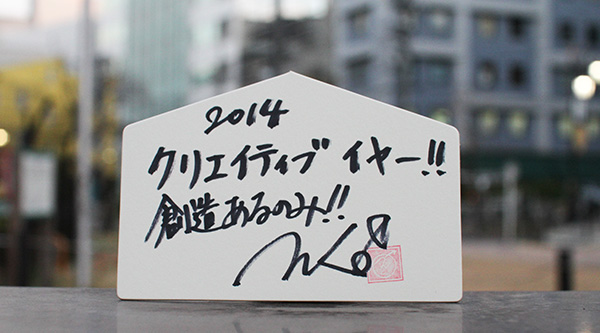 2014
クリエイティブ イヤー!!
創造あるのみ!!